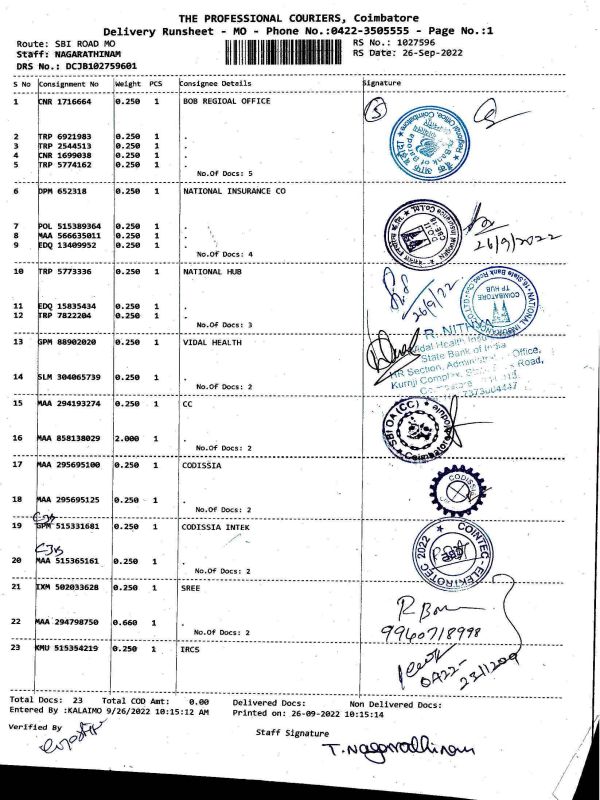 THE PROFESSIONAL COURIERS, Coimbatore
Delivery Runsheet - MO - Phone No.:0422-3505555 - Page No.:1
Route: SBI ROAD MO
RS No.: 1027596
Staff: NAGARATHINAM
RS Date: 26-Sep-2022
DRS No.: DCJB102759601
S No Consignment No Weight PCS Consignee Details Signature
1 CNR 1716664 0.250 1 BOB REGIOAL OFFICE
2 TRP 6921983 0.250 1 .
3 TRP 2544513 0.250 1 .
4 CNR 1699038 0.250 1 .
5 TRP 5774162 0.250 1 .
No.Of Docs: 5
5
Bank of Baroda
6 DPM 652318 0.250 1 NATIONAL INSURANCE CO
7 POL 515389364 0.250 1 .
8 MAA 566635011 0.250 1 .
9 EDQ 13409952 0.250 1 .
No.Of Docs: 4
26/9/2022
10 TRP 5773336 0.250 1 NATIONAL HUB
11 EDQ 15835434 0.250 1 .
12 TRP 7822204 0.250 1 .
No.Of Docs: 3
26/9/22
COIMBATORE
TP HUB
13 GPM 88902020 0.250 1 VIDAL HEALTH
14 SLM 304065739 0.250 1 .
No.Of Docs: 2
R. NITHYA
Vidal Health
State Bank of India
HR Section, Office,
Kurnji Complex, Road,
7373004447
15 MAA 294193274 0.250 1 CC
16 MAA 858138029 2.000 1 .
No.Of Docs: 2
SBI OA (CC)
Coimbatore
17 MAA 295695100 0.250 1 CODISSIA
18 MAA 295695125 0.250 1 .
No.Of Docs: 2
CODISSIA
CJB
19 GPM 515331681 0.250 1 CODISSIA INTEK
CJB
20 MAA 515365161 0.250 1 .
No.Of Docs: 2
COINTEC - ELEKTROTEC 2022
21 IXM 502033628 0.250 1 SREE
22 MAA 294798750 0.660 1 .
No.Of Docs: 2
9940718998
23 KMU 515354219 0.250 1 IRCS
Total Docs: 23 Total COD Amt: 0.00 Delivered Docs: Non Delivered Docs:
Entered By :KALAIMO 9/26/2022 10:15:12 AM Printed on: 26-09-2022 10:15:14
Verified By
Staff Signature
T. Nagarathinam